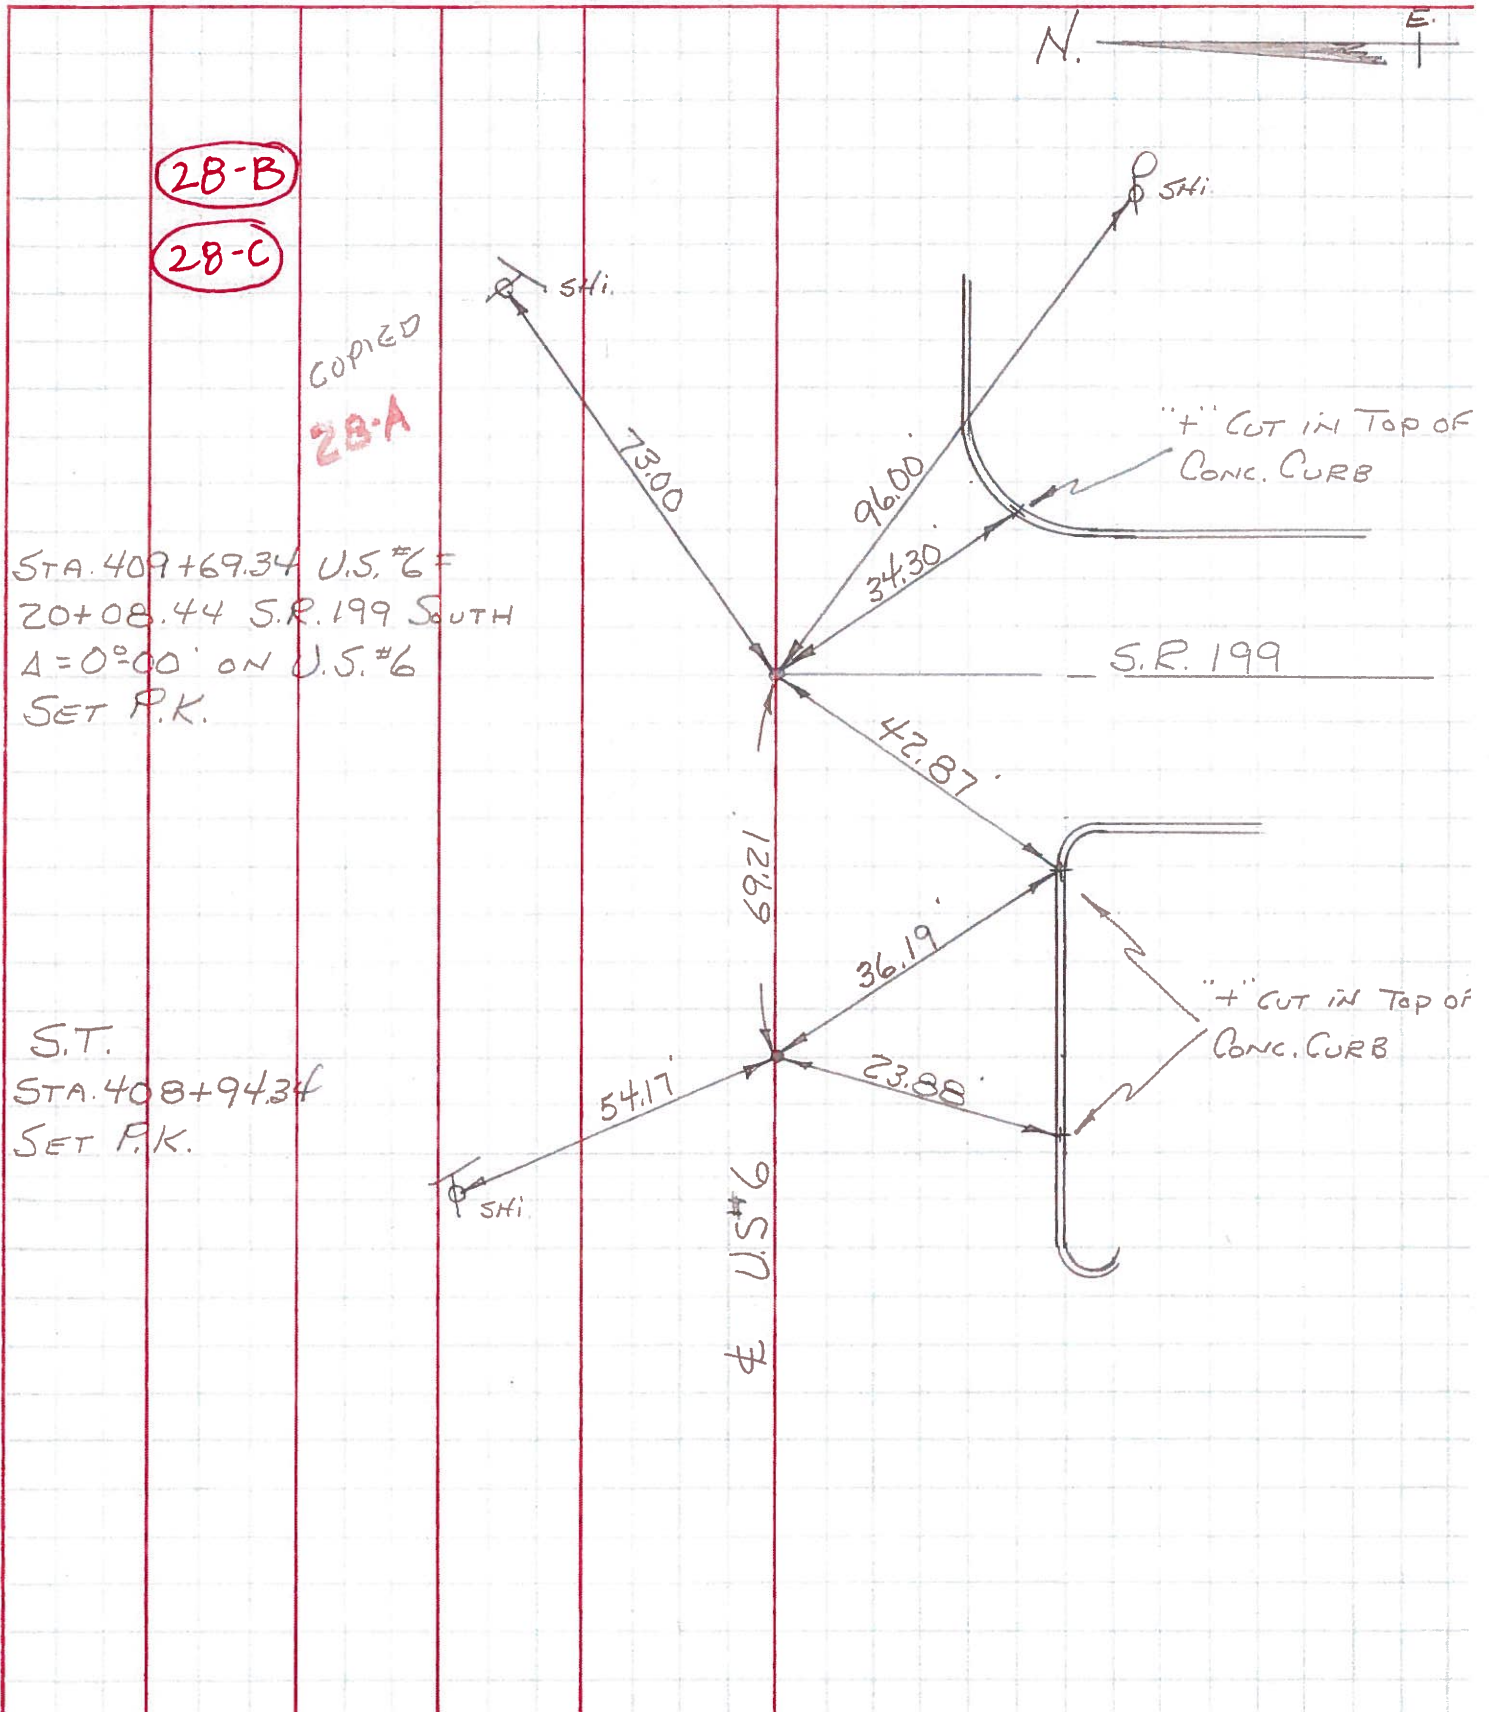 N.
E.
28-B
28-C
SHi.
SHi.
COPIED
28-A
73.00'
96.00'
"+" CUT IN TOP OF
CONC. CURB
34.30'
STA. 409+69.34 U.S. #6 =
20+08.44 S.R. 199 SOUTH
Δ = 0°00' ON U.S. #6
SET P.K.
S.R. 199
42.87'
69.21'
36.19'
"+" CUT IN TOP OF
CONC. CURB
S.T.
STA. 408+94.34
SET P.K.
54.17'
23.88'
SHi.
℄ U.S #6